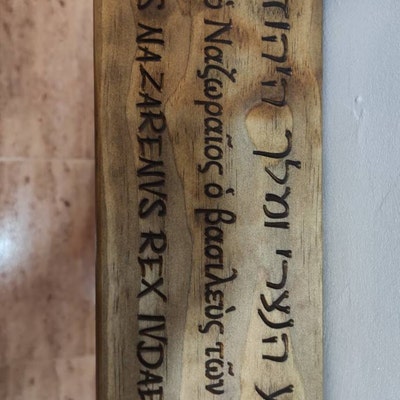 ע הנצרי ומלך היהוד
ὁ Ναζωραῖος ὁ βασιλεὺς τῶν
S NAZARENVS REX IVDAE